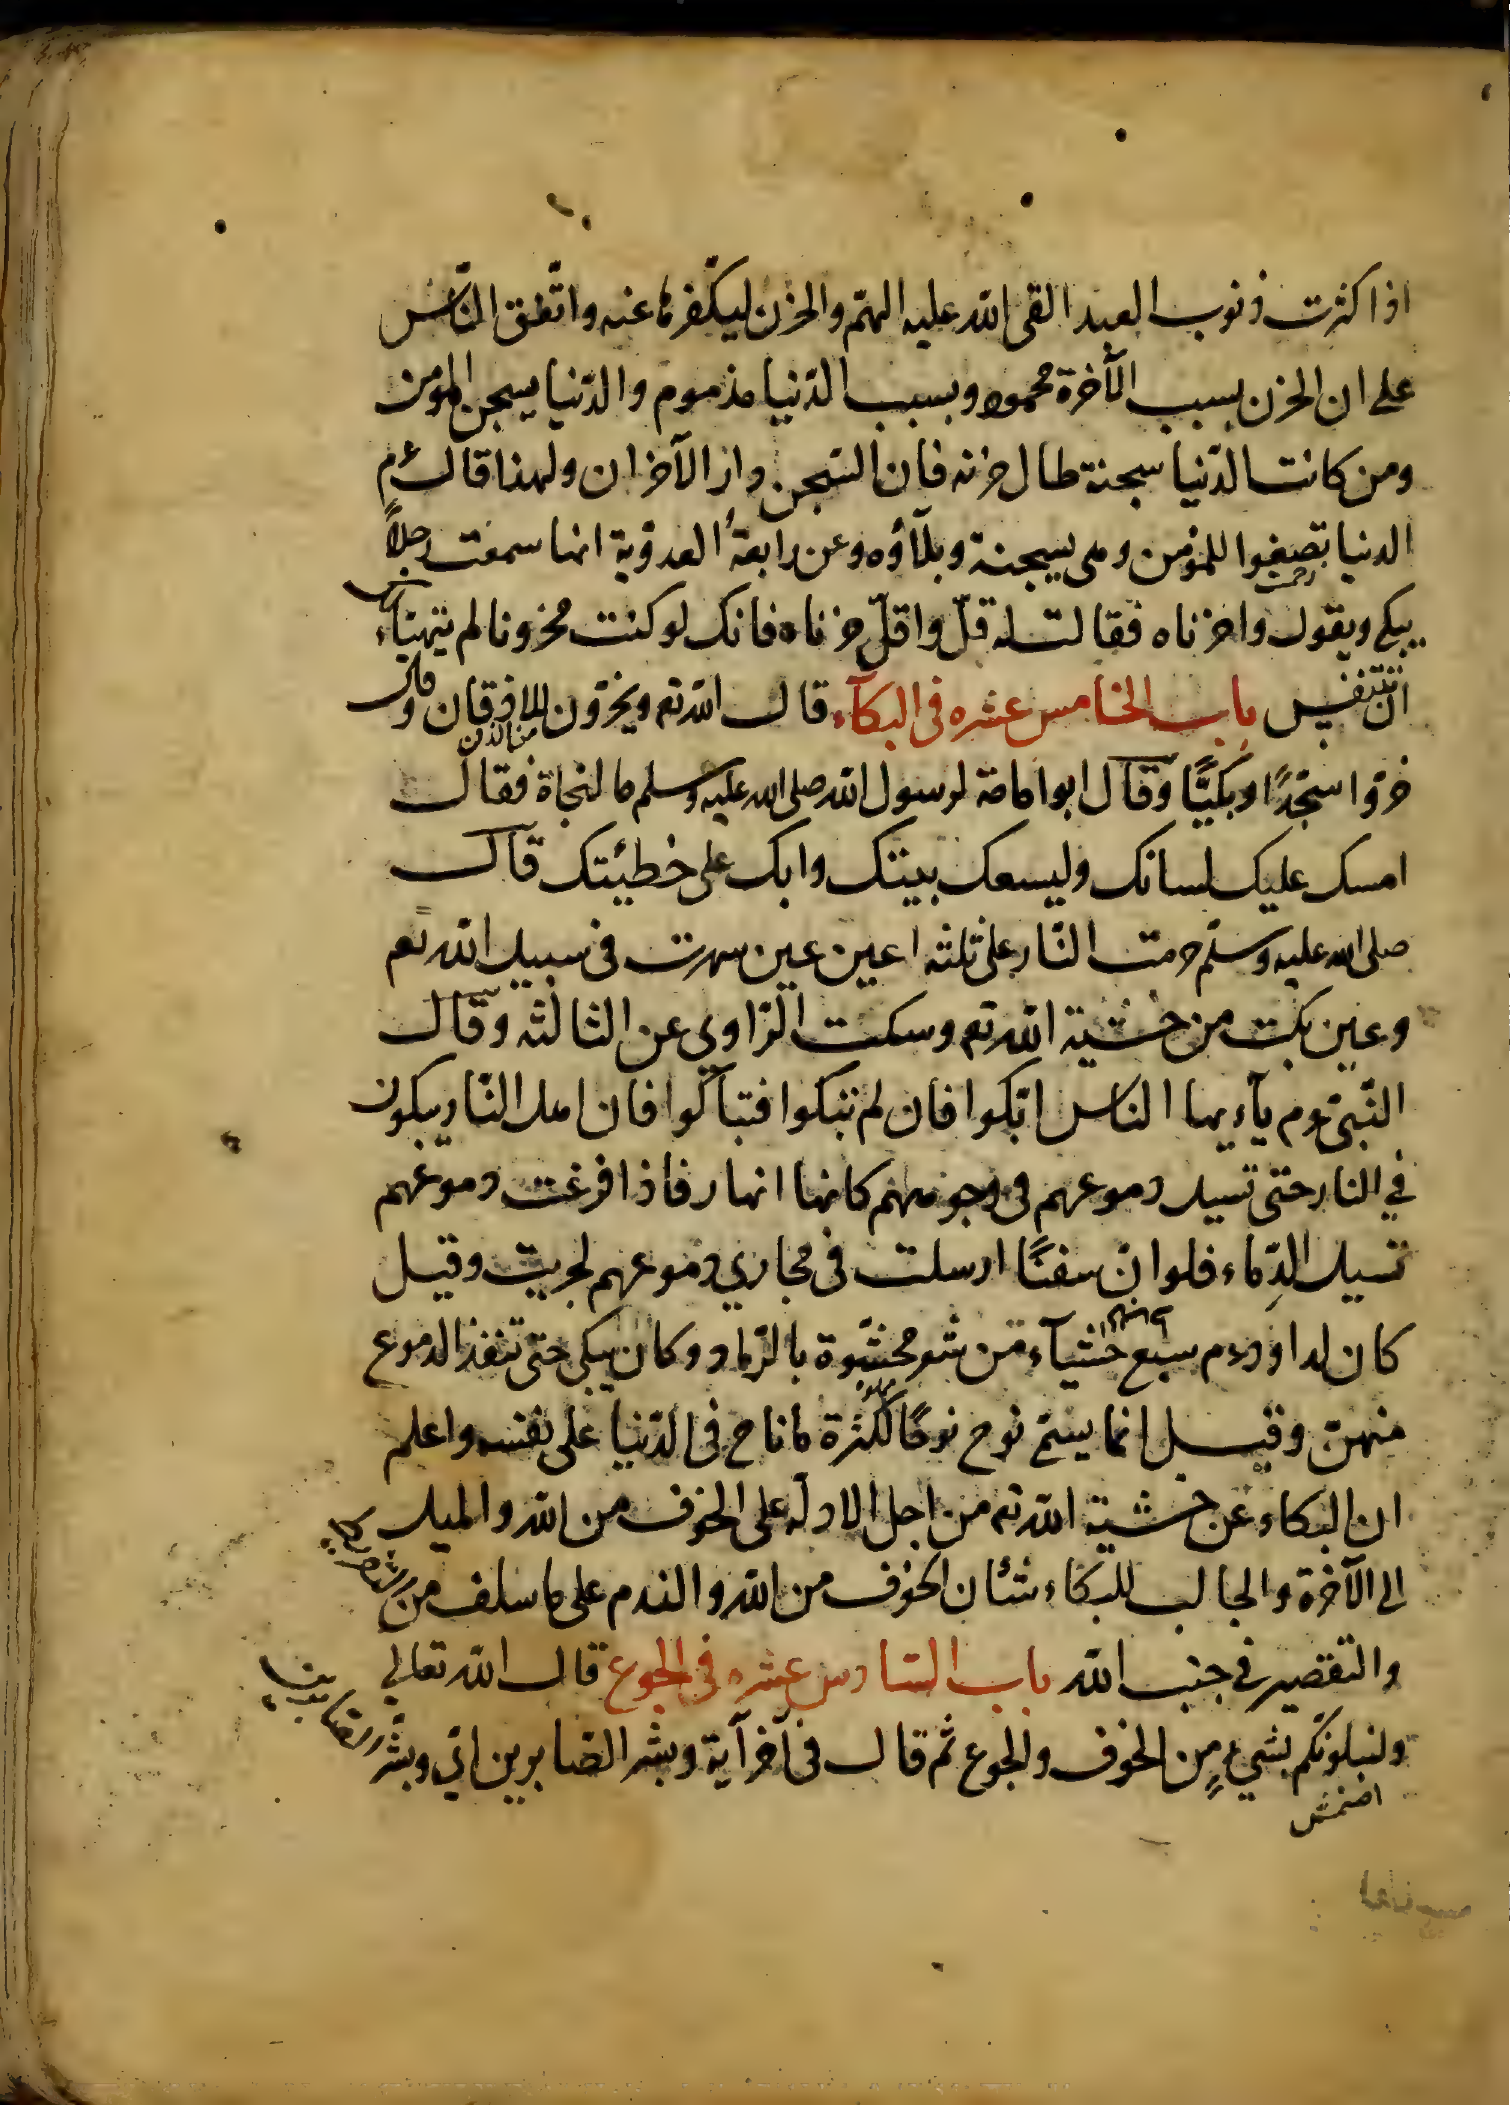 اذا كثرت ذنوب العبد القى الله عليه الهمّ والحزن ليكفّرها عنه واتّفق النّاس
على ان الحزن بسبب الآخرة محمود وبسبب الدّنيا مذموم والدّنيا سجن المؤمن
ومن كانت الدّنيا سجنه طال حزنه فان السّجن دار الاحزان ولهذا قال ءم
الدنيا تصفوا للمؤمن وهى سجنه وبلاؤه وعن رابعة العدوية انها سمعت رجلاً
يبكي ويقول واحزناه فقالت له قلّ واقلّ حزناه فانك لو كنت محزونا لم يتهيّأ لك
ان تتنفس باب الخامس عشره فى البكآء قال الله تع ويخرّون للاذقان وقال
خرّوا سجّدًا وبكيًّا وقال ابو امامة لرسول الله صلى الله عليه وسلم ما النجاة فقال
امسك عليك لسانك وليسعك بيتك وابك على خطيئتك قال
صلى الله عليه وسلّم حرمت النّار على ثلثه اعين عين سهرت فى سبيل الله تع
وعين بكت من خشية الله تع وسكت الرّاوي عن الثالثه وقال
النّبىّ ءم يآءيها الناس ابكوا فان لم تبكوا فتباكوا فان اهل النّار يبكون
في النار حتى تسيل دموعهم فى وجوههم كانها انهار فاذا فرغت دموعهم
تسيل الدّماء فلو انّ سفنًا ارسلت فى مجاري دموعهم لجريت وقيل
كان لداود ءم سبع حشيآء من شعر محشوّة بالرّماد وكان يبكى حتى تنفذ الدموع
منهنّ وقيل انما سمّى نوح نوحًا لكثرة ما ناح فى الدّنيا على نفسه واعلم
ان البكاء عن خشية الله تع من اجل الادلّه على الخوف من الله والميل
الى الآخرة والجالب للبكاء شئان الخوف من الله والندم على ما سلف من
والتقصير فى جنب الله باب السّادس عشره فى الجوع قال الله تعالى
ولنبلونّكم بشيءٍ من الخوف والجوع ثم قال فى آخر آية وبشر الصّابرين اي وبشّر